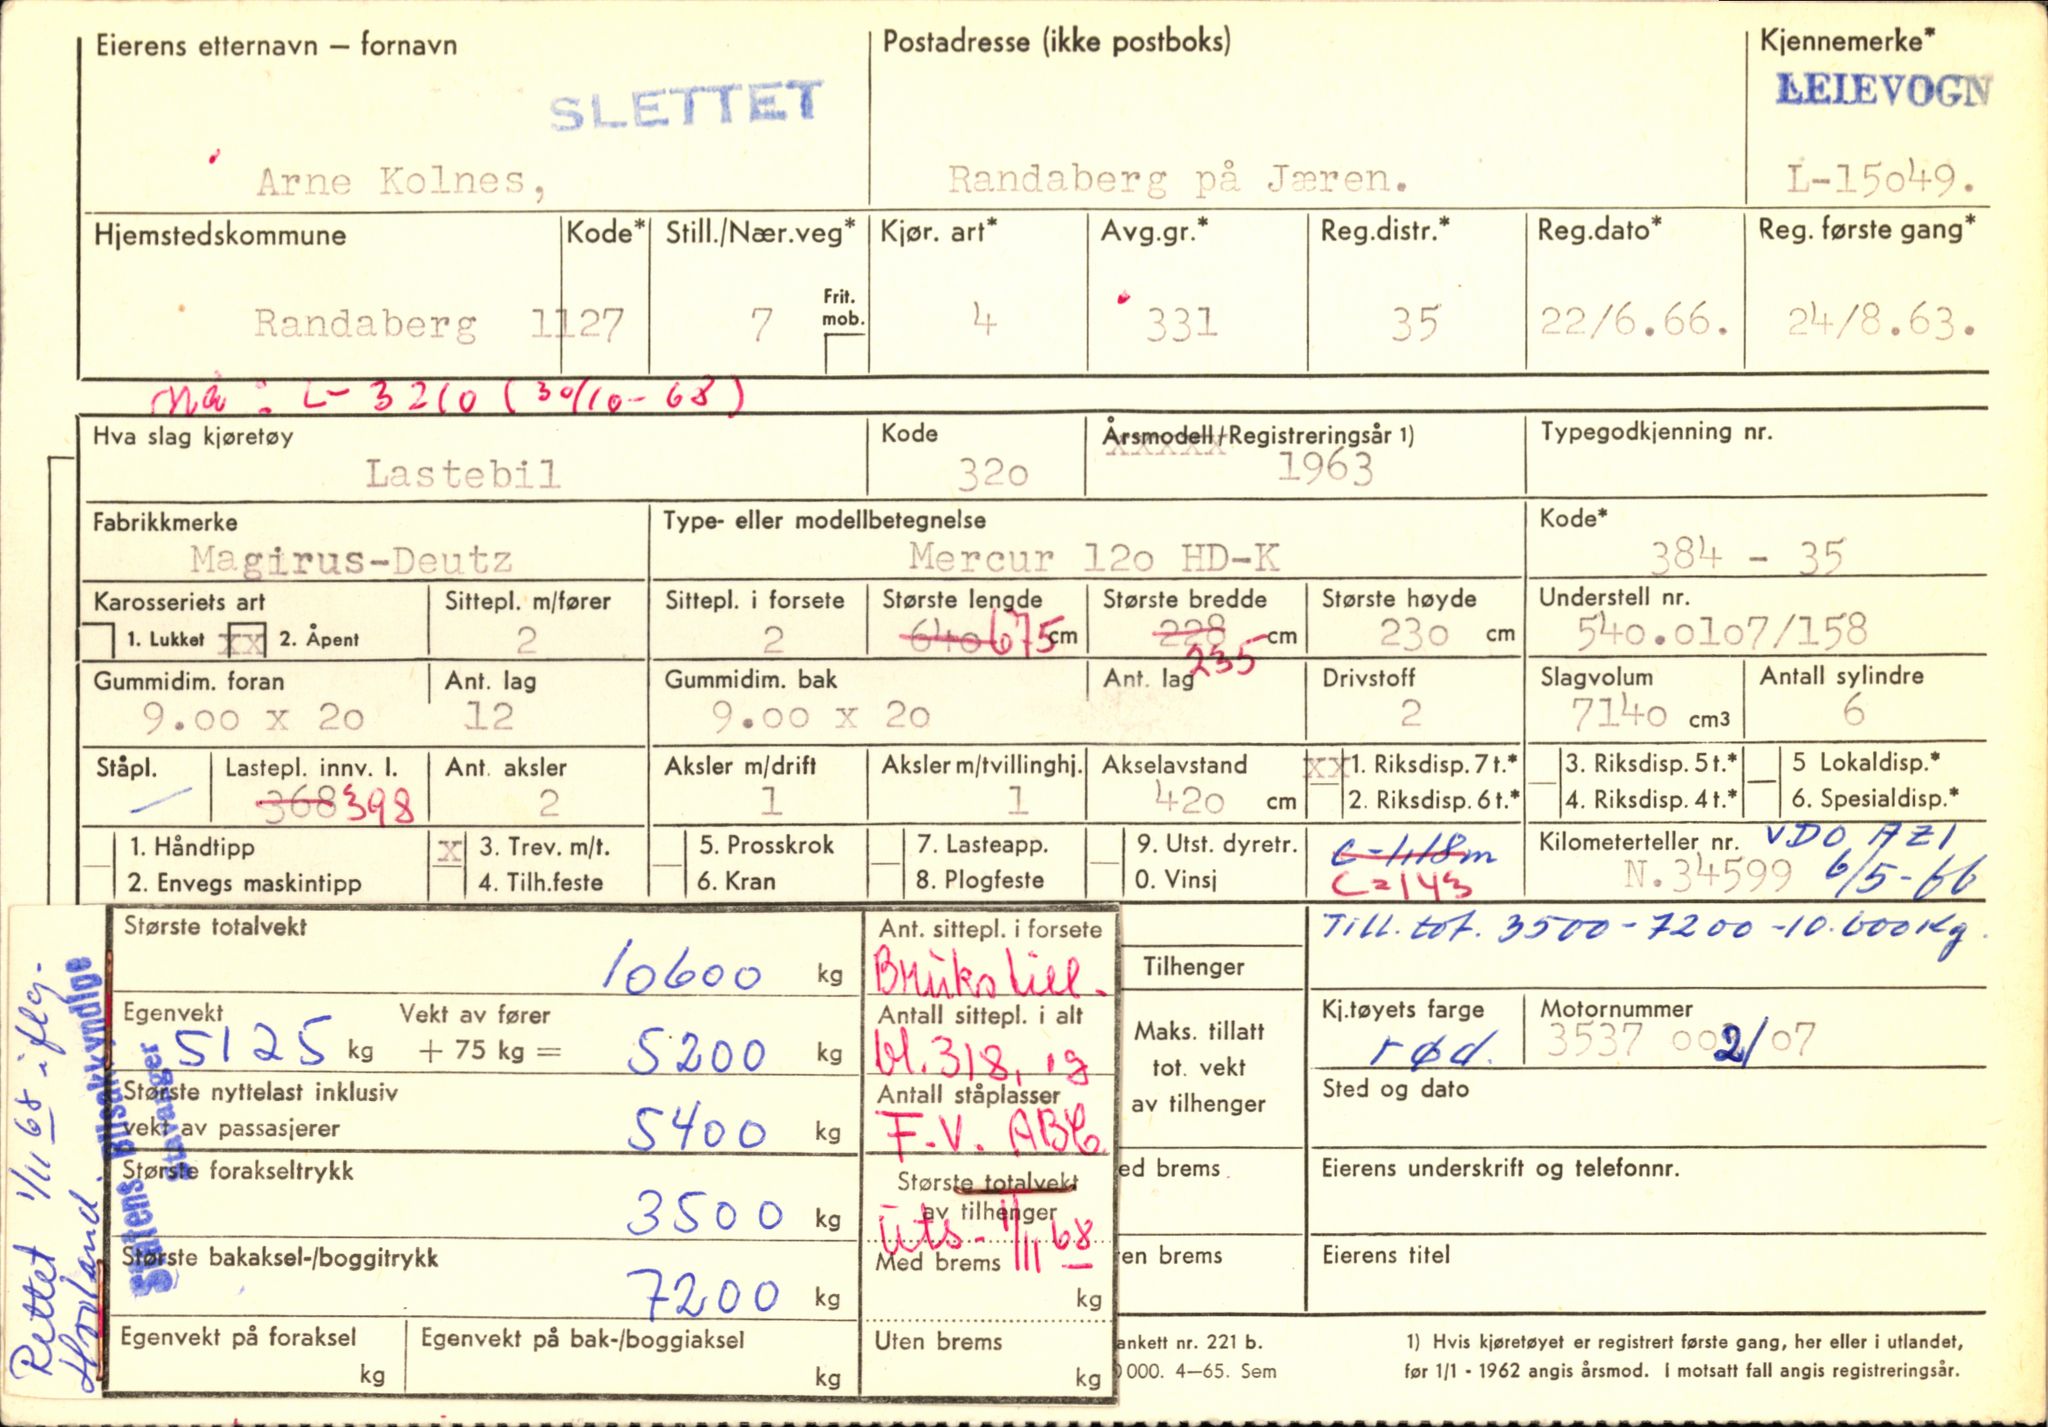 Eierens etternavn – fornavn Postadresse (ikke postboks) Kjennemerke*
SLETTET LEIEVOGN
Arne Kolnes, Randaberg på Jæren. L-15049.
Hjemstedskommune Kode* Still./Nær.veg* Kjør. art* Avg.gr.* Reg.distr.* Reg.dato* Reg. første gang*
Frit. mob.
Randaberg 1127 7 4 331 35 22/6.66. 24/8.63.
nå: L-3210 (30/10-68)
Hva slag kjøretøy Kode Årsmodell/Registreringsår 1) Typegodkjenning nr.
Lastebil 320 1963
Fabrikkmerke Type- eller modellbetegnelse Kode*
Magirus-Deutz Mercur 120 HD-K 384 - 35
Karosseriets art Sittepl. m/fører Sittepl. i forsete Største lengde Største bredde Største høyde Understell nr.
1. Lukket xx 2. Åpent 2 2 640 675 cm 228 cm 230 cm 540.0107/158
235
Gummidim. foran Ant. lag Gummidim. bak Ant. lag Drivstoff Slagvolum Antall sylindre
9.00 x 20 12 9.00 x 20 2 7140 cm3 6
Ståpl. Lastepl. innv. l. Ant. aksler Aksler m/drift Aksler m/tvillinghj. Akselavstand xx 1. Riksdisp. 7 t.* 3. Riksdisp. 5 t.* 5 Lokaldisp.*
368 398 2 1 1 420 cm 2. Riksdisp. 6 t.* 4. Riksdisp. 4 t.* 6. Spesialdisp.*
1. Håndtipp x 3. Trev. m/t. 5. Prosskrok 7. Lasteapp. 9. Utst. dyretr. C-1,18m Kilometerteller nr. VDO AZI
2. Envegs maskintipp 4. Tilh.feste 6. Kran 8. Plogfeste 0. Vinsj C=143 N.34599 6/5-66
Største totalvekt Ant. sittepl. i forsete Till. tot. 3500-7200-10.600kg.
10600 kg Brukstill. Tilhenger
Egenvekt Vekt av fører Antall sittepl. i alt Maks. tillatt Kj.tøyets farge Motornummer
5125 kg + 75 kg = 5200 kg bl. 3/8, og tot. vekt rød. 3537 002/07
Største nyttelast inklusiv Antall ståplasser av tilhenger Sted og dato
vekt av passasjerer 5400 kg F.V. ABC
Største forakseltrykk Største totalvekt ed brems Eierens underskrift og telefonnr.
3500 kg av tilhenger
Uts. 1/11 68
Største bakaksel-/boggitrykk Med brems en brems Eierens titel
7200 kg kg
Egenvekt på foraksel Egenvekt på bak-/boggiaksel Uten brems ankett nr. 221 b. 1) Hvis kjøretøyet er registrert første gang, her eller i utlandet,
kg kg kg 000. 4–65. Sem før 1/1 - 1962 angis årsmod. I motsatt fall angis registreringsår.
Rettet 1/11 68 iflg.
Hovland.
Statens Bilsakkyndige
Stavanger